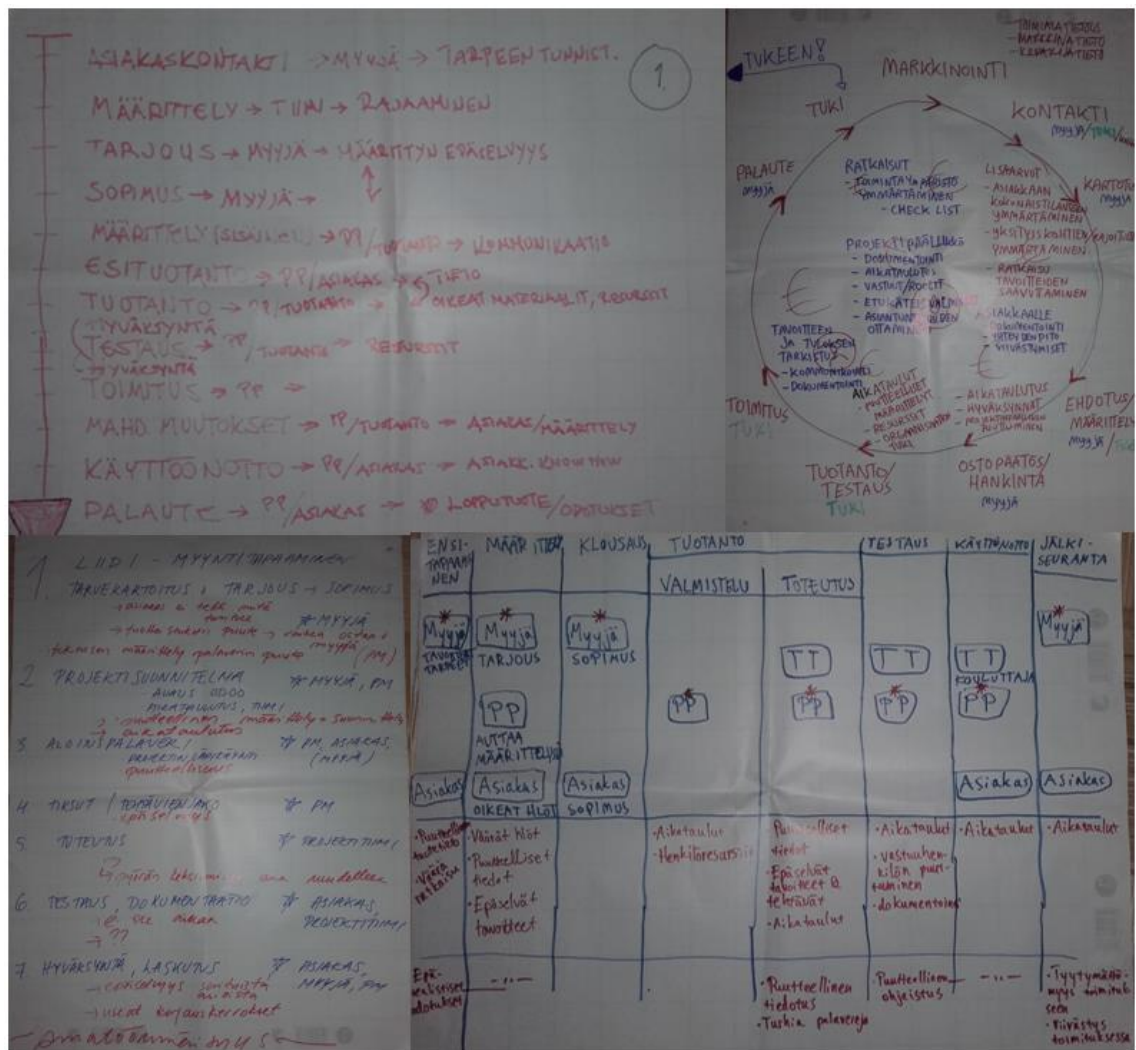 ASIAKASKONTAKTI → MYYJÄ → TARPEEN TUNNIST.
1.
MÄÄRITTELY → TIIMI → RAJAAMINEN
TARJOUS → MYYJÄ → MÄÄRITTYN EPÄSELVYYS
SOPIMUS → MYYJÄ →
MÄÄRITTELY (SISÄINEN) → PP/TUOTANTO → KOMMUNIKAATIO
ESITUOTANTO → PP/ASIAKAS → TIETO
TUOTANTO → PP/TUOTANTO → OIKEAT MATERIAALIT, RESURSSIT
HYVÄKSYNTÄ
TESTAUS → PP/TUOTANTO → RESURSSIT
HYVÄKSYNTÄ
TOIMITUS → PP →
MAHD. MUUTOKSET → PP/TUOTANTO → ASIAKAS/MÄÄRITTELY
KÄYTTÖÖNOTTO → PP/ASIAKAS → ASIAKK. KNOW HOW
PALAUTE → PP/ASIAKAS → LOPPUTUOTE/ODOTUKSET
- TOIMIALATIETOUS
- MARKKINATIETO
TUKEEN!
MARKKINOINTI
TUKI
KONTAKTI
myyjä/TUKI
PALAUTE
myyjä
KARTOITUS
myyjä
RATKAISUT
- TOIMINTAYMPÄRISTÖ
YMMÄRTÄMINEN
- CHECK LIST
LISÄARVOT
- ASIAKKAAN
KOKONAISTILANTEEN
YMMÄRTÄMINEN
- YKSITYISKOHTIEN/RAJOITTEIDEN
YMMÄRTÄMINEN
- RATKAISU
TAVOITTEIDEN
SAAVUTTAMINEN
PROJEKTIPÄÄLLIKKÖ
- DOKUMENTOINTI
- AIKATAULUTUS
- VASTUUT/ROOLIT
- ETUKÄTEISVALMIUS
- ASIANTUNTIJOIDEN
OTTAMINEN
ASIAKKAALLE
- DOKUMENTOINTI
- YHTEYDENPITO
- VIIVÄSTYMISET
TAVOITTEEN
JA TULOKSEN
TARKISTUS
- KOMMUNIKOINTI
- DOKUMENTOINTI
AIKATAULUT
- PUUTTEELLISET
MÄÄRITTELYT
- RESURSSIT
- ORGANISAATION
TUKI
- AIKATAULUTUS
- HYVÄKSYNNÄT
TOIMITUS
TUKI
EHDOTUS/
MÄÄRITTELY
myyjä/TUKI
TUOTANTO/
TESTAUS
TUKI
OSTOPÄÄTÖS/
HANKINTA
myyjä
1. LIIDI - MYYNTITAPAAMINEN
TARVEKARTOITUS, TARJOUS → SOPIMUS
MYYJÄ
(PM)
2 PROJEKTISUUNNITELMA MYYJÄ, PM
AIKATAULUTUS, TIIMI
→ puutteellinen määrittely + suunnittelu
→ aikataulutus
3. ALOITUSPALAVERI PM, ASIAKAS,
(MYYJÄ)
puutteellisuus
4. TIKSUT / TEHTÄVIENJAKO PM
epäselvyys
5. TOTEUTUS PROJEKTITIIMI
6. TESTAUS, DOKUMENTAATIO ASIAKAS,
PROJEKTITIIMI
→ ei ole aikaa
→ ??
7. HYVÄKSYNTÄ, LASKUTUS ASIAKAS,
MYYJÄ, PM
→ epäselvyys sovituista
asioista
→ useat korjauskierrokset
ENSI-
TAPAAMI-
NEN
MÄÄRITTELY
KLOUSAUS
TUOTANTO
TESTAUS
KÄYTTÖNOTTO
JÄLKI-
SEURANTA
VALMISTELU
TOTEUTUS
Myyjä
Myyjä
Myyjä
Myyjä
TAVOITTEET
TARPEET
TARJOUS
SOPIMUS
TT
TT
TT
KOULUTTAJA
PP
PP
PP
PP
PP
AUTTAA
MÄÄRITTELYSSÄ
Asiakas
Asiakas
Asiakas
Asiakas
Asiakas
OIKEAT HLÖT
SOPIMUS
• Puutteellinen
tuotetieto
• Väärä
ratkaisu
• Väärät hlöt
• Puutteelliset
tiedot
• Epäselvät
tavoitteet
• Aikataulut
• Henkilöresurssit
• Puutteelliset
tiedot
• Epäselvät
tavoitteet &
tehtävät
• Aikataulut
• Aikataulut
• vastuuhen-
kilön puut-
tuminen
• dokumentointi
• Aikataulut
• Aikataulut
Epä-
realistiset
odotukset
- " -
• Puutteellinen
tiedotus
• Turhia palavereja
Puutteellinen
ohjeistus
- " -
• Tyytymättö-
myys toimituk-
seen
• Viivästys
toimituksessa